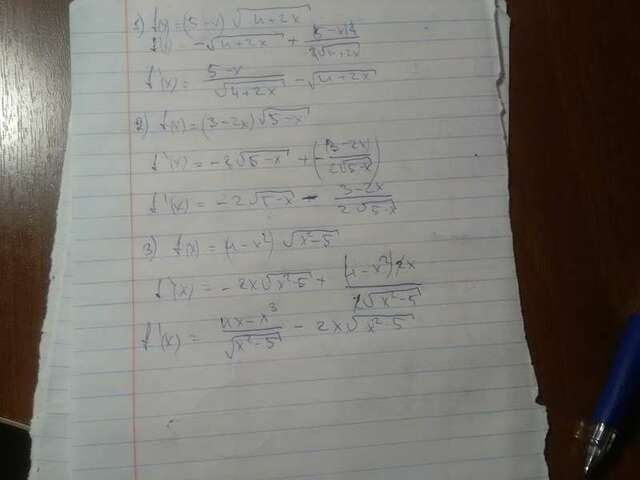 1) f(x)=(5-x)√(4+2x)
f'(x) = -√(4+2x) + (5-x)2/(2√(4+2x))
f'(x) = (5-x)/√(4+2x) - √(4+2x)
2) f(x)=(3-2x)√(5-x)
f'(x) = -2√(5-x) + (-(3-2x)/(2√(5-x)))
f'(x) = -2√(5-x) - (3-2x)/(2√(5-x))
3) f(x) = (4-x²) √(x²-5)
f'(x) = -2x√(x²-5) + (4-x²)2x/(2√(x²-5))
f'(x) = (4x-x³)/√(x²-5) - 2x√(x²-5)